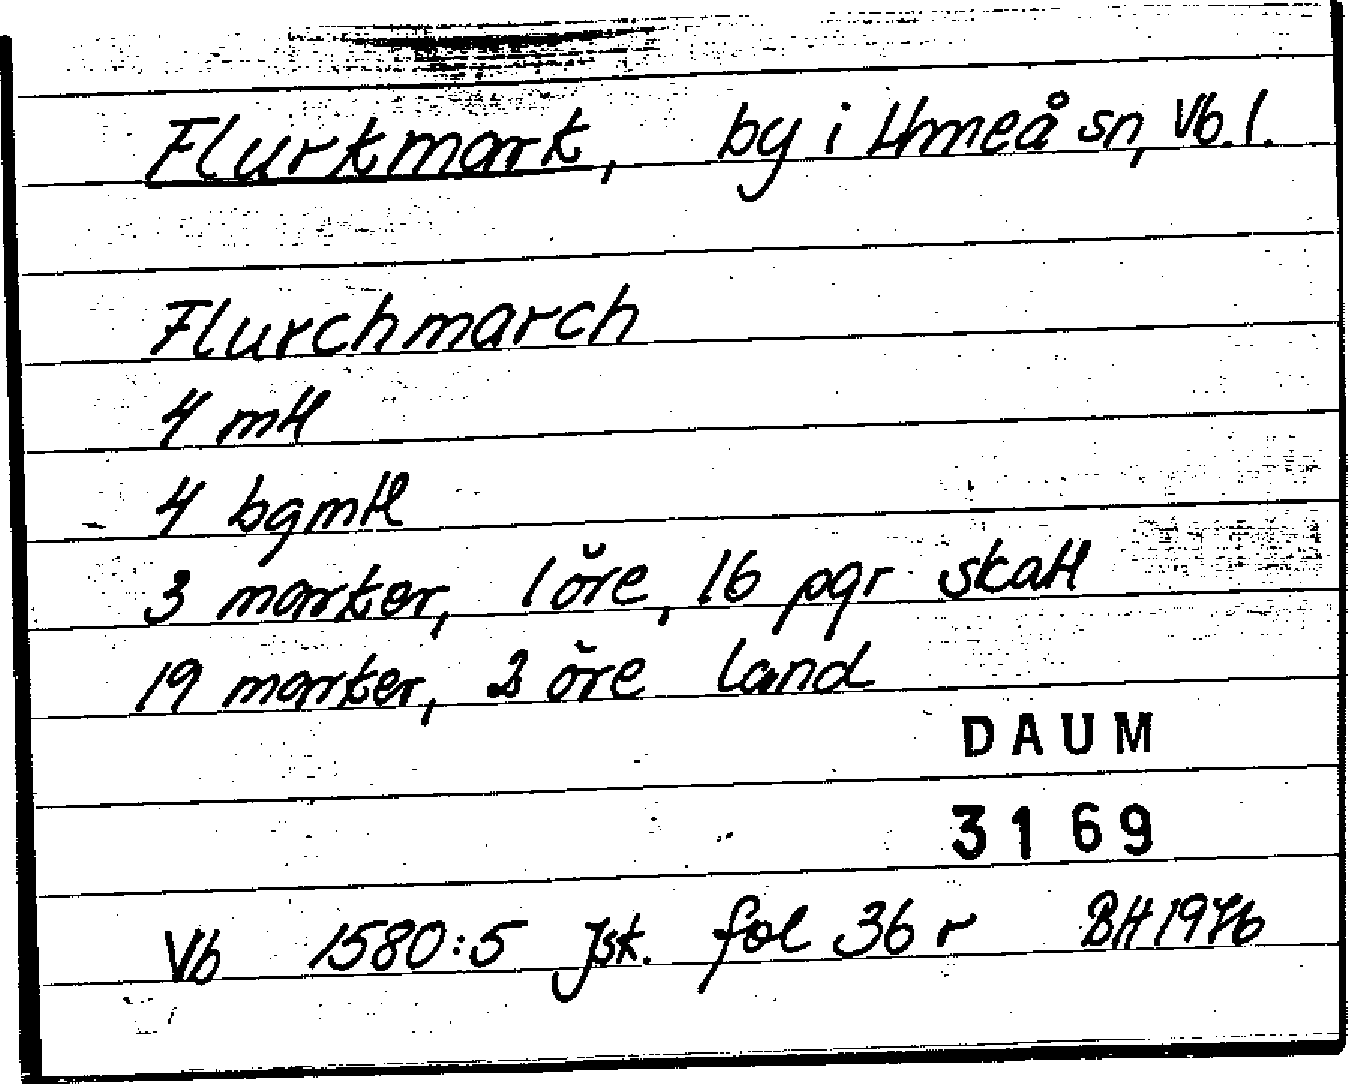 Flurkmark, by i Umeå sn, Vb. l.
Flurchmarch
4 mtl
4 bgmtl
3 marker, 1 öre, 16 pgr skatt
19 marker, 2 öre land
DAUM
3169
Vb 1580:5 Jsk. fol 36 r BH 1976